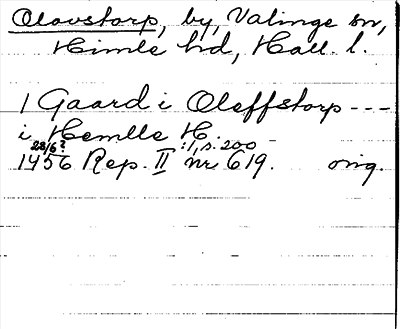 Olovstorp, by, Valinge sn,
Himle hd, Hall. l.
1 Gaard i Oleffstorp ---
i Hemlle H.
28/6? :1, s. 200
1456 Rep. II nr 619. orig.